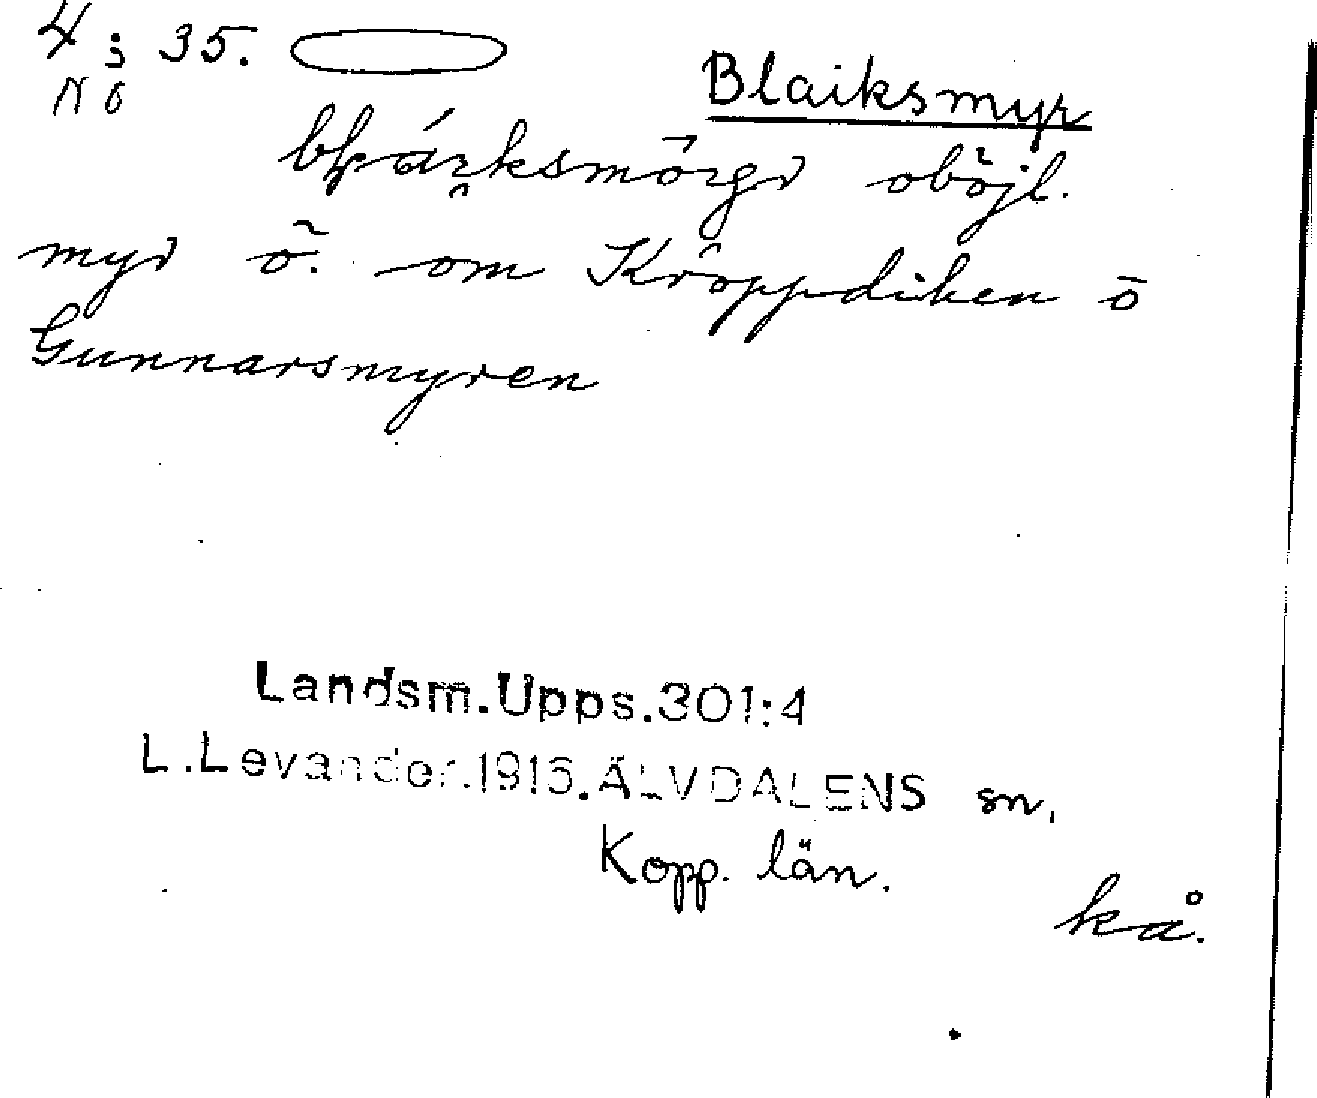 4; 35.
NO
Blaiksmyr
oböjl.
myr ö. om Kröppdiken ö
Gunnarsmyren
Landsm.Upps.301:4
L.Levander.1915.ÄLVDALENS sn.
Kopp. län.
kå.